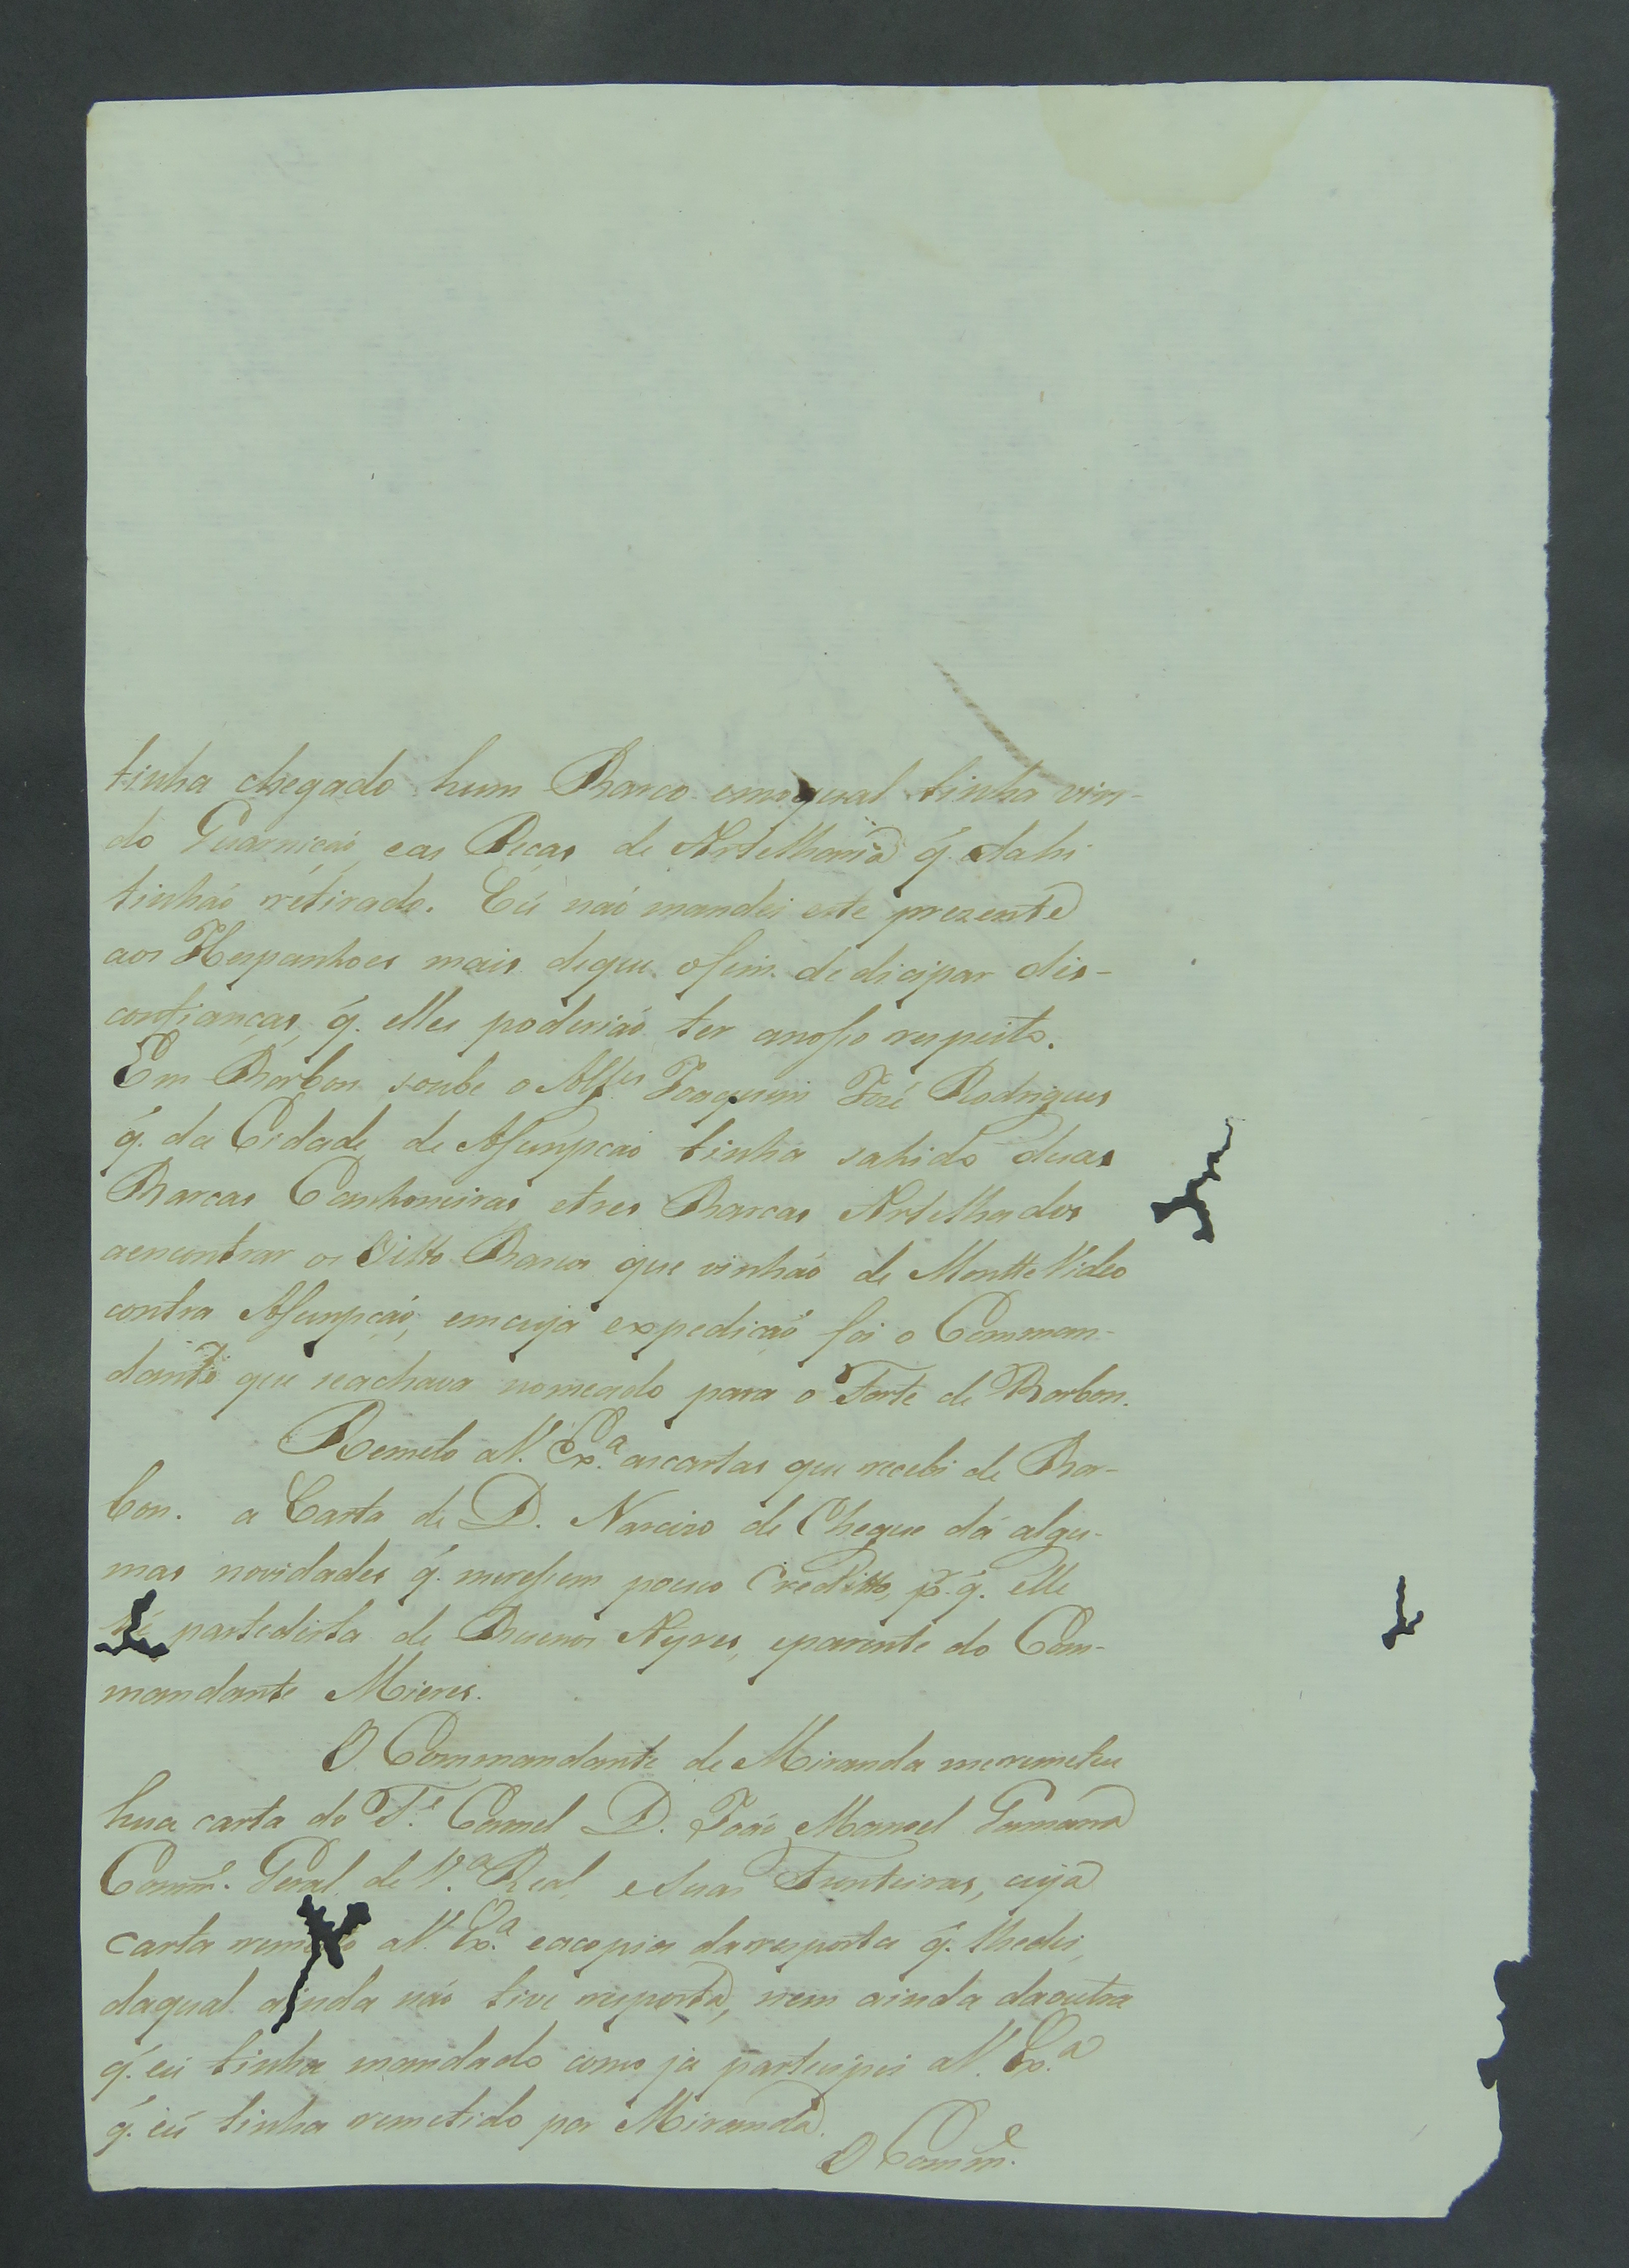 tinha chegado hum Barco emoqual tinha vin-
do Guarnicaó, eas Peças de Artelharia q̃. dahi
tinhaó retirado. Eú naó mandei este prezente
aos Hespanhoes mais deque ofim. de dicipar dis-
confianças, q̃. elles poderiaó ter anosso respeito.
Em Borbon soube o Alfes Joaquim José Rodrigues
q̃. da Cidade de Assumpcaó tinha sahido duas
Barcas Canhoneiras etres Barcas Artelhados
aencontrar os Oitto Barcos que vinhaó de MontteVideo
contra Assumpcaó, emcuja expedicaó foi o Comman-
dante que seachava nomeado para o Forte de Borbon.
Remeto aV. Ex.ª ascartas que recebi de Bor-
bon. a Carta de D. Narcizo de Cheque dá algu-
mas novidades q̃. meressem pouco Creditto, p.q̃. elle
hé partedista de Buenos Ayres, eparente do Com-
mandante Mieres.
O Commandante de Miranda meremeteu
hua carta do T.e Coronel D. Joaó Manoel Gamarra
Comm.e Geral de V.ª Real, eSuas Frunteiras, cuja
carta remeto aV. Ex.ª eacopia daresposta q̃. lhedei,
daqual ainda naó tive resposta, nem ainda daoutra
q̃. eú tinha mandado como já partecipei aV. Ex.ª
q̃. eú tinha remetido por Miranda.
O Comm.e